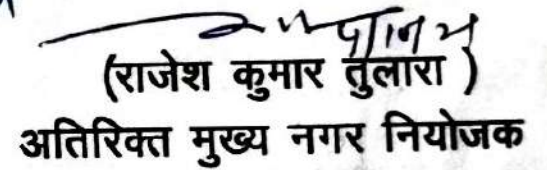 (राजेश कुमार तुलारा )
अतिरिक्त मुख्य नगर नियोजक